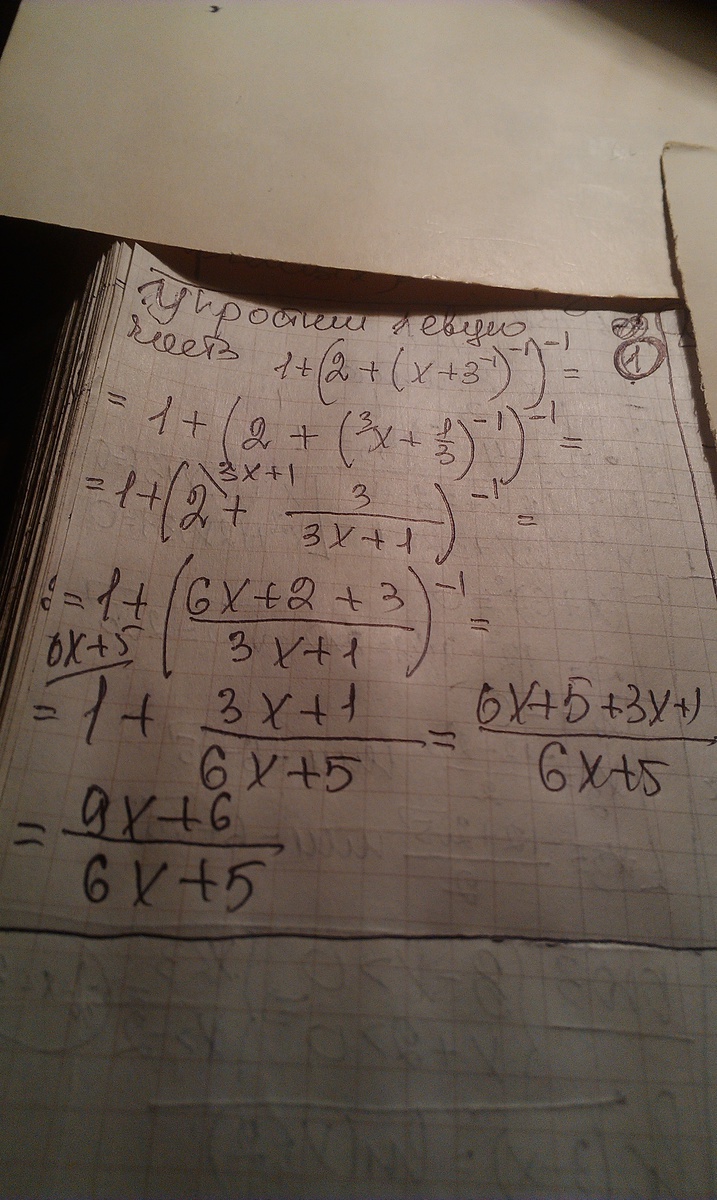 Упростим левую
часть 1+(2+(x+3⁻¹)⁻¹)⁻¹= ①
= 1+(2+(³x+1/3)⁻¹)⁻¹=
=1+(2\3x+1 + 3/(3x+1))⁻¹=
=1+((6x+2+3)/(3x+1))⁻¹=
6x+5
=1+(3x+1)/(6x+5)=(6x+5+3x+1)/(6x+5)
=(9x+6)/(6x+5)